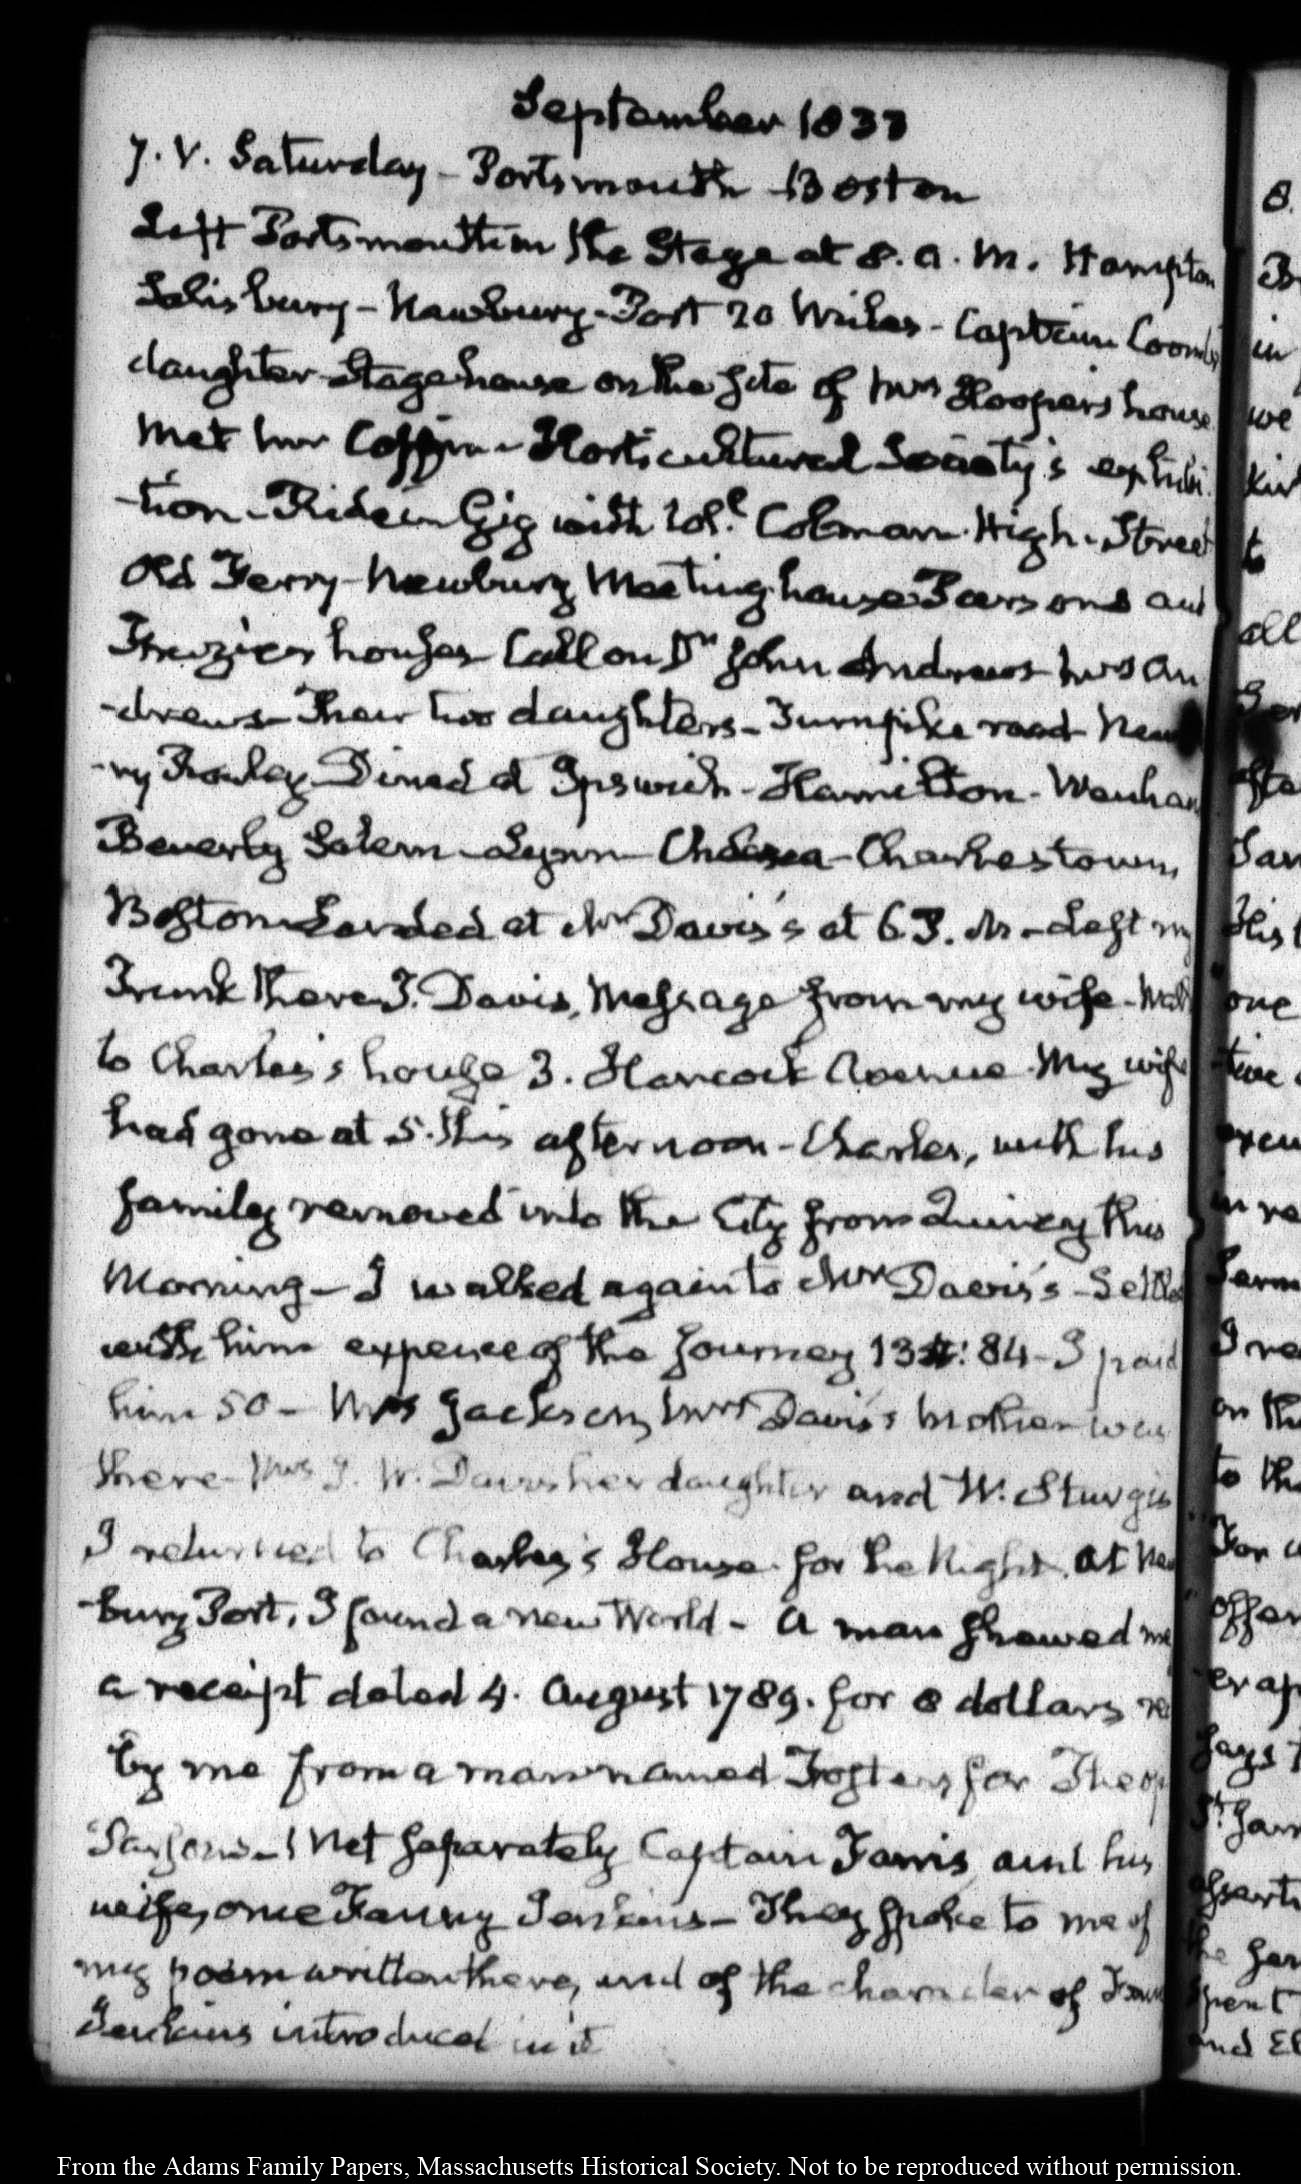 September 1833
7. V. Saturday - Portsmouth - Boston
Left Portsmouth in the Stage at 8. a. m. Hampton
Salisbury - Newbury-Port 20 Miles - Captain Coombs
daughter Stage house on the site of Mrs Hooper's house
Met Mr Coffin - Horticultural Society's exhibi-
-tion - Ride in Gig with Colman - High-Street
Old Ferry - Newbury Meeting house Parsons and
houses Call on Dr John Andrews Mrs An
-drews - Their two daughters - Turnpike road - New
-ry Rowley Dined at Ipswich - Hamilton - Wenham
Beverly Salem - Lynn - Chelsea - Charlestown,
Boston Landed at Mr Davis's at 6 P. M - Left my
Trunk there I. Davis, Message from my wife - Walk
to Charles's house 3. Hancock Avenue. My wife
had gone at 5. this afternoon - Charles, with his
family removed into the City from Quincy this
Morning - I walked again to Mr Davis's - Settled
with him expence of the Journey 13 : 84 - I paid
him 50 - Mrs Jackson, Mrs Davis's Mother was
there - Mrs I. W. Davis her daughter and W. Sturgis
I returned to Charles's House for the Night. At New
-bury Port, I found a new World - A man showed me
a receipt dated 4. August 1789. for 8 dollars re
by me from a man named for Theop
Parsons - I Met separately Captain Farris and his
wife, once Fanny Jenkins - They spoke to me of
my poem written there, and of the character of
Jenkins introduced in it
8.
in
we
to
all
one
I re
on the
to the
For
offer
er ap
says
St Jam
spent
and El
From the Adams Family Papers, Massachusetts Historical Society. Not to be reproduced without permission.